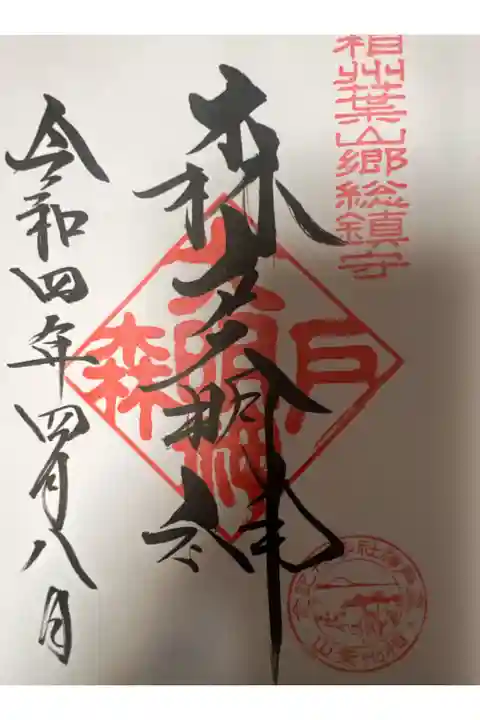 相州葉山郷総鎮守
森戸大明神
森戸大明神
令和四年四月八日